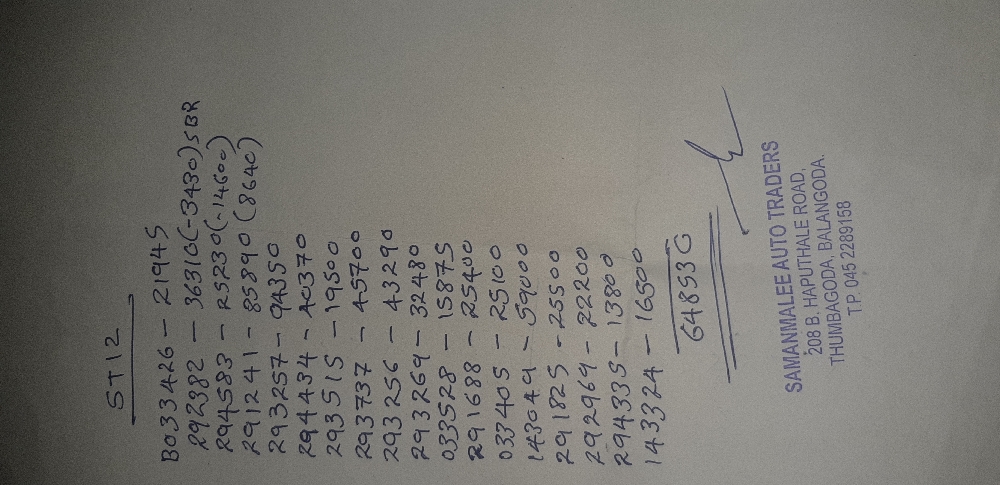 ST12
B033426 - 21945
292382 - 36310(-3430)SBR
294583 - 25230(-14600)
291241 - 85890 (8640)
293257 - 94350
294434 - 40370
293515 - 19500
293737 - 45700
293256 - 43290
293269 - 32480
033528 - 15875
291688 - 25400
033405 - 25100
143049 - 59000
291825 - 25500
292969 - 22200
294335 - 13800
143324 - 16500
648530
SAMANMALEE AUTO TRADERS
208 B. HAPUTHALE ROAD,
THUMBAGODA, BALANGODA.
T.P. 045 2289158